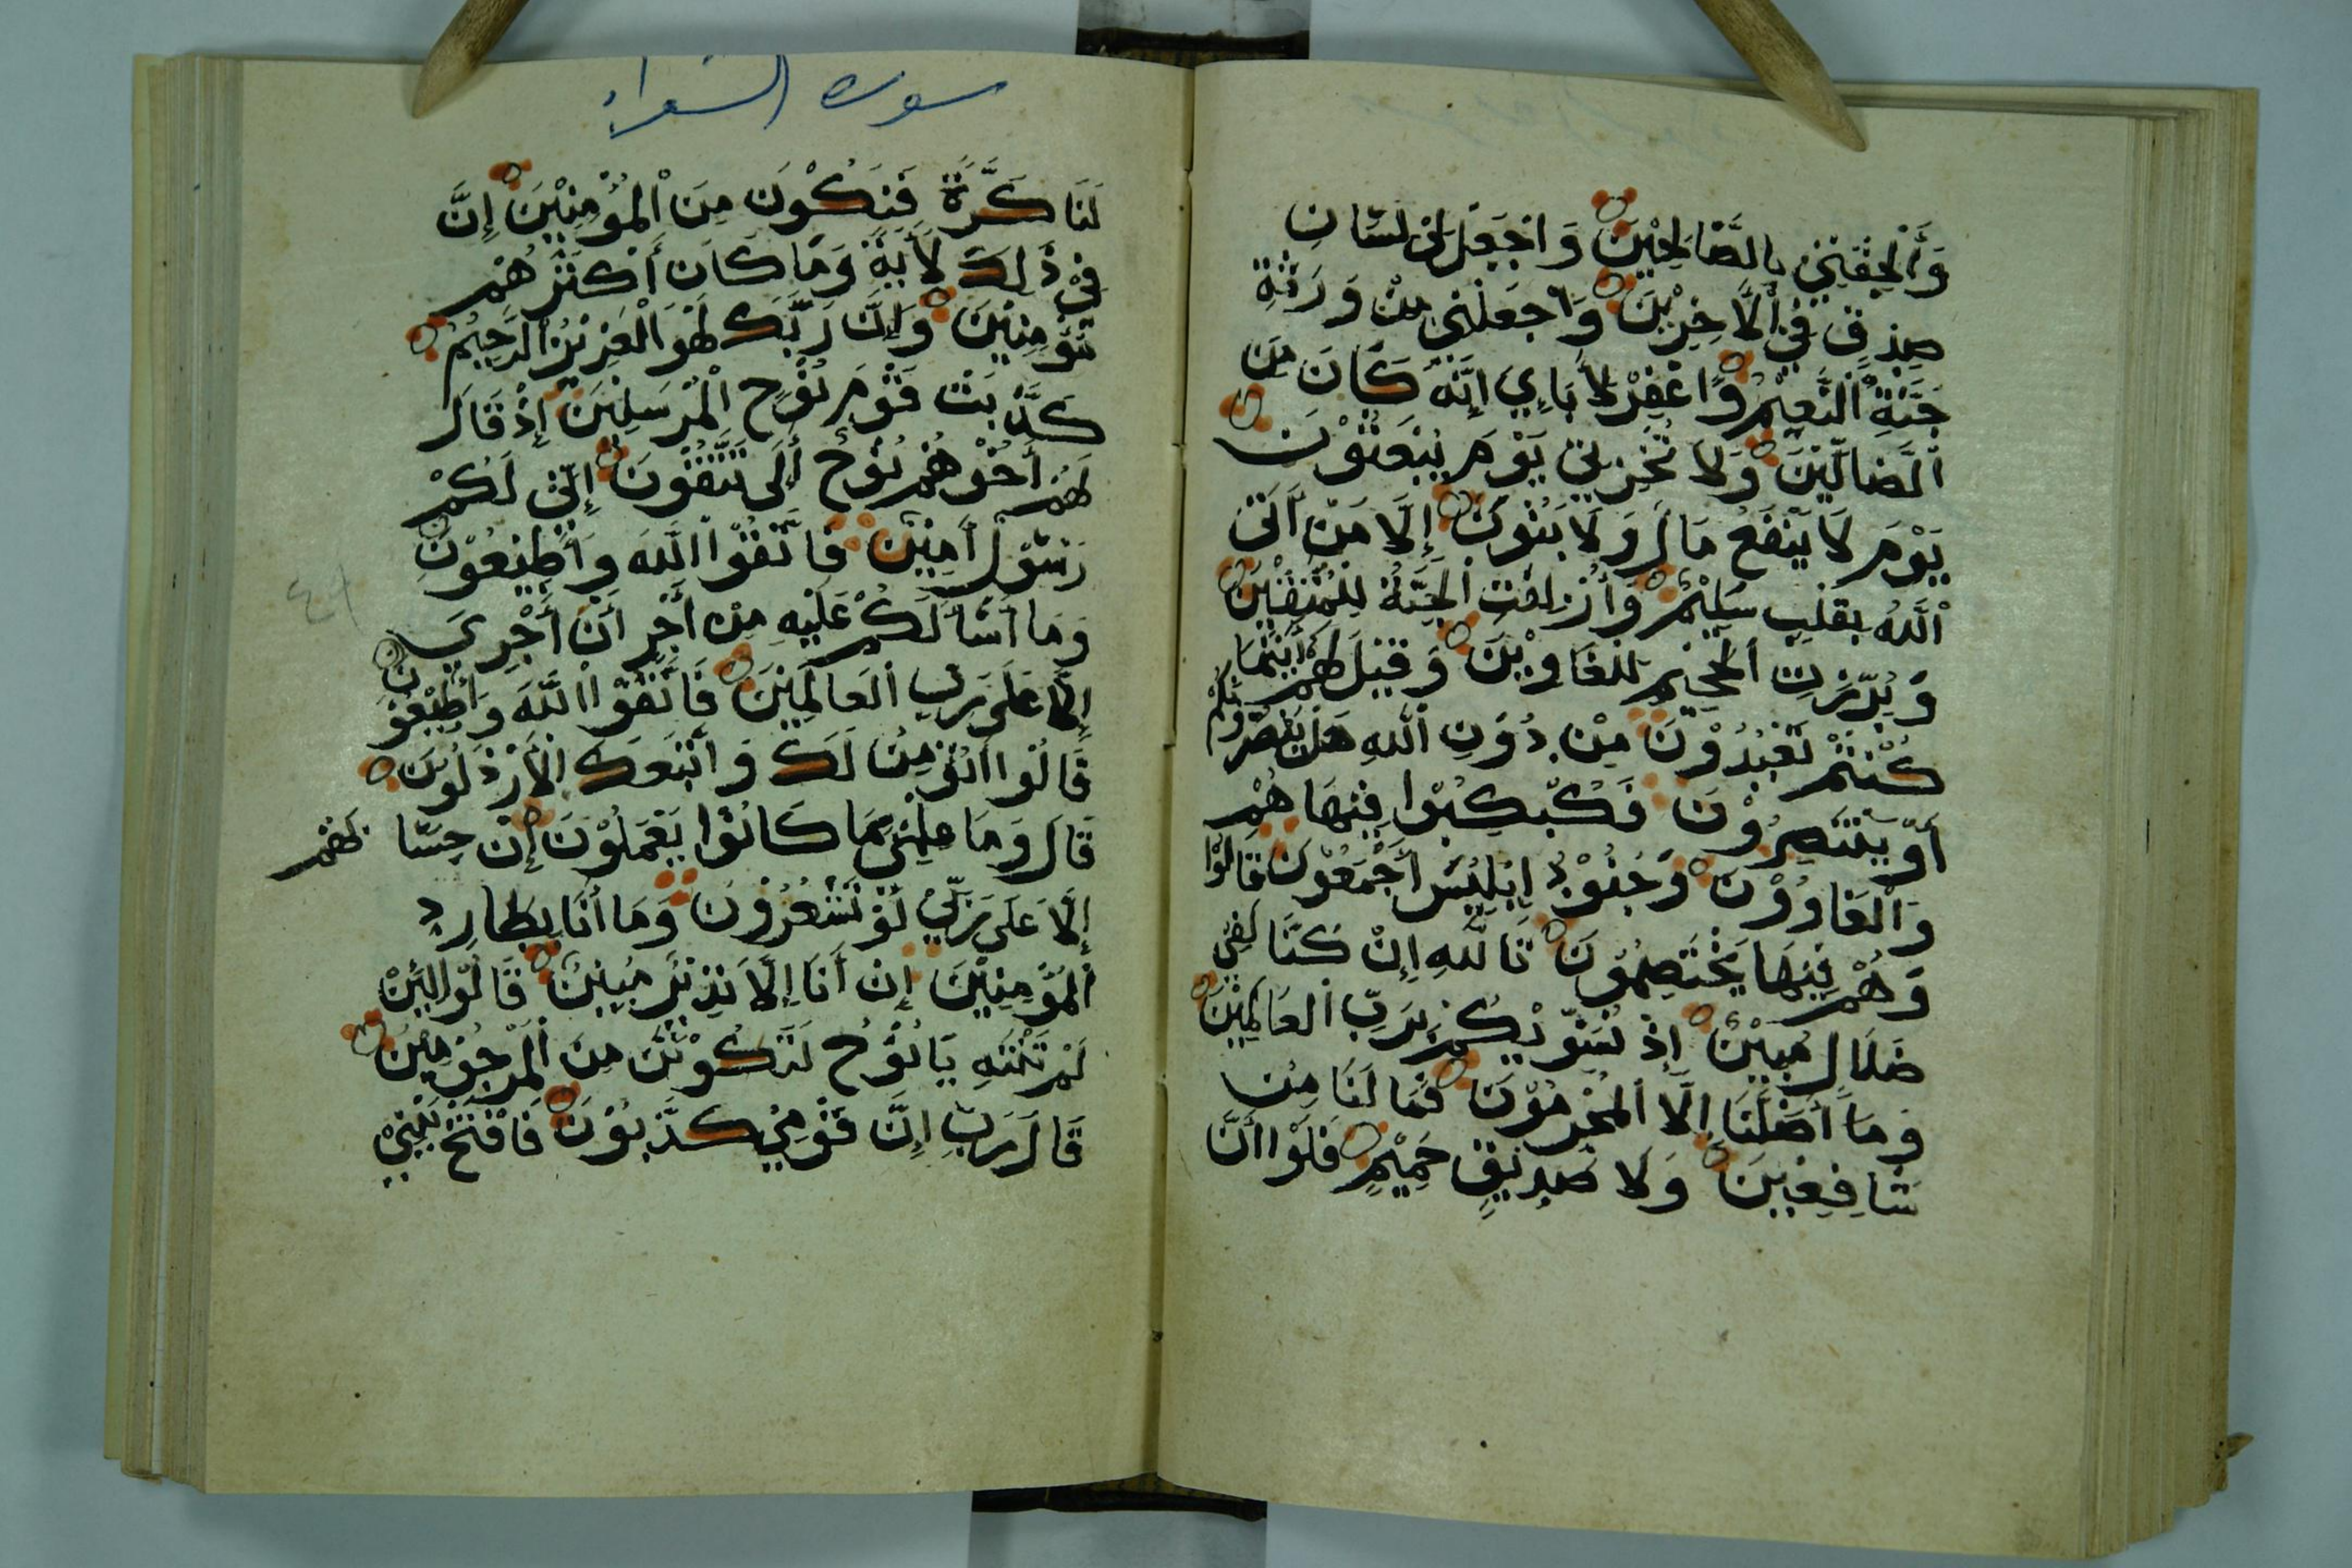 وَأَلْحِقْنِي بِالصَّالِحِيْنَ وَاجْعَل لِي لِسَانَ
صِدْقٍ فِي اْلَاخِرِيْنَ وَاجْعَلْنِي مِنْ وَرَثَةِ
جَنَّةِ اْلنَّعِيْمِ وَاغْفِرْ لِأَبَاِي اِنَّهُ كَانَ مِنَ
اْلضَالِّيْنَ وَلَا تُخْزِنِي يَوْمَ يُبْعَثُوْنَ
يَوْمَ لَا يَنْفَعُ مَالٌ وَلَا بَنُونَ إِلَّا مَنْ أَتَى
اْللَّهَ بِقَلْبٍ سَلِيْمٍ وَأُزْلِفَتِ الْجَنَّةُ لِلْمُتَّقِيْنَ
وَبُرِّزَتِ الْجَحِيْمُ لِلْغَاوِيْنَ وَقِيْلَ لَهُمْ أَيْنَمَا
كُنْتُمْ تَعْبُدُوْنَ مِنْ دُوْنِ اللَّهِ هَلْ يَنْصُرُوْنَكُمْ
أَوْ يَنْتَصِرُوْنَ فَكُبْكِبُوْا فِيْهَا هُمْ
وَاْلْغَاوُوْنَ وَجُنُوْدُ اِبْلِيْسَ أَجْمَعُوْنَ قَالُوْا
وَهُمْ فِيْهَا يَخْتَصِمُوْنَ تَاللَّهِ إِنْ كُنَّا لَفِيْ
ضَلَالٍ مُبِيْنٍ إِذْ نُسَوِّيْكُمْ بِرَبِّ الْعَالَمِيْنَ
وَمَا أَضَلَّنَا إِلَّا الْمُجْرِمُوْنَ فَمَا لَنَا مِنْ
شَافِعِيْنَ وَلَا صَدِيْقٍ حَمِيْمٍ فَلَوْا أَنَّ
سورة الشعراء
لَنَا كَرَّةً فَنَكُوْنَ مِنَ الْمُؤْمِنِيْنَ إِنَّ
فِيْ ذَلِكَ لَأَيَةً وَمَا كَانَ أَكْثَرُهُمْ
مُؤْمِنِيْنَ وَإِنَّ رَبَّكَ لَهُوَ الْعَزِيْزُ الرَّحِيْمُ
كَذَّبَتْ قَوْمُ نُوْحٍ الْمُرْسَلِيْنَ إِذْ قَالَ
لَهُمْ أَخُوْهُمْ نُوْحٌ أَلَى تَتَّقُوْنَ إِنِّيْ لَكُمْ
رَسُوْلٌ أَمِيْنٌ فَاتَّقُوْا اللَّهَ وَأَطِيْعُوْنِ
وَمَا أَسْأَلُكُمْ عَلَيْهِ مِنْ أَجْرٍ أَنْ أَجْرِيَ
إِلَّا عَلَى رَبِّ الْعَالَمِيْنَ فَاتَّقُوْا اللَّهَ وَأَطِيْعُوْنِ
قَالُوْا أَنُؤْمِنُ لَكَ وَاتَّبَعَكَ الْأَرْذَلُوْنَ
قَالَ وَمَا عِلْمِيْ بِمَا كَانُوْا يَعْمَلُوْنَ إِنْ حِسَابُهُمْ
إِلَّا عَلَى رَبِّيْ لَوْ تَشْعُرُوْنَ وَمَا أَنَا بِطَارِدِ
الْمُؤْمِنِيْنَ إِنْ أَنَا إِلَّا نَذِيْرٌ مُبِيْنٌ قَالُوْا لَئِنْ
لَمْ تَنْتَهِ يَا نُوْحُ لَتَكُوْنَنَّ مِنَ الْمَرْجُوْمِيْنَ
قَالَ رَبِّ إِنَّ قَوْمِيْ كَذَّبُوْنَ فَافْتَحْ بَيْنِيْ